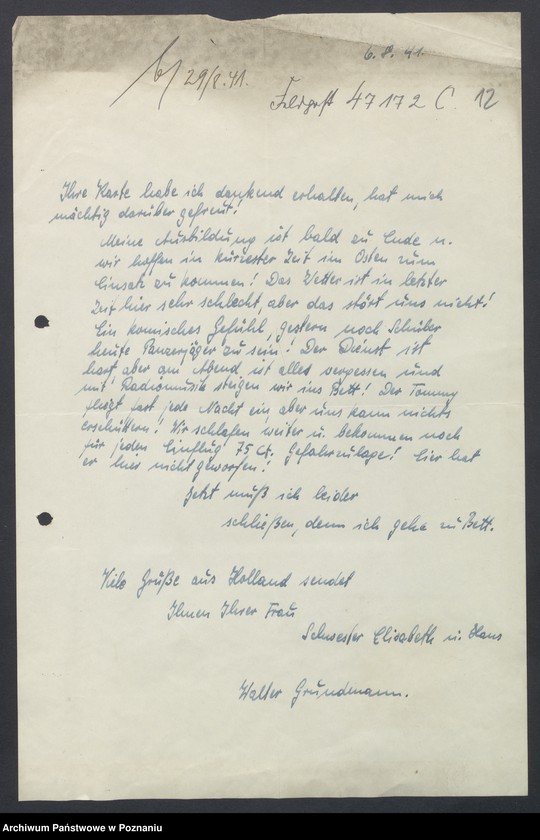 6. 8. 41.
b/ 29/8. 41.
Feldpost 47172 C. 12
Ihre Karte habe ich dankend erhalten, hat mich
mächtig darüber gefreut!
Meine Ausbildung ist bald zu Ende u.
wir hoffen in kürzester Zeit im Osten zum
Einsatz zu kommen! Das Wetter ist in letzter
Zeit hier sehr schlecht, aber das stört uns nicht!
Ein komisches Gefühl, gestern noch Schüler
heute Panzerjäger zu sein! Der Dienst ist
hart aber am Abend ist alles vergessen und
mit Radiomusik steigen wir ins Bett! Der Tommy
fliegt fast jede Nacht ein aber uns kann nichts
erschüttern! Wir schlafen weiter u. bekommen noch
für jeden Einflug 75 ct. Gefahrzulage! Hier hat
er hier nicht geworfen!
Jetzt muß ich leider
schließen, denn ich gehe zu Bett.
Viele Grüße aus Holland sendet
Ihnen Ihrer Frau
Schwester Elisabeth u. Hans
Walter Grundmann.
Archiwum Państwowe w Poznaniu